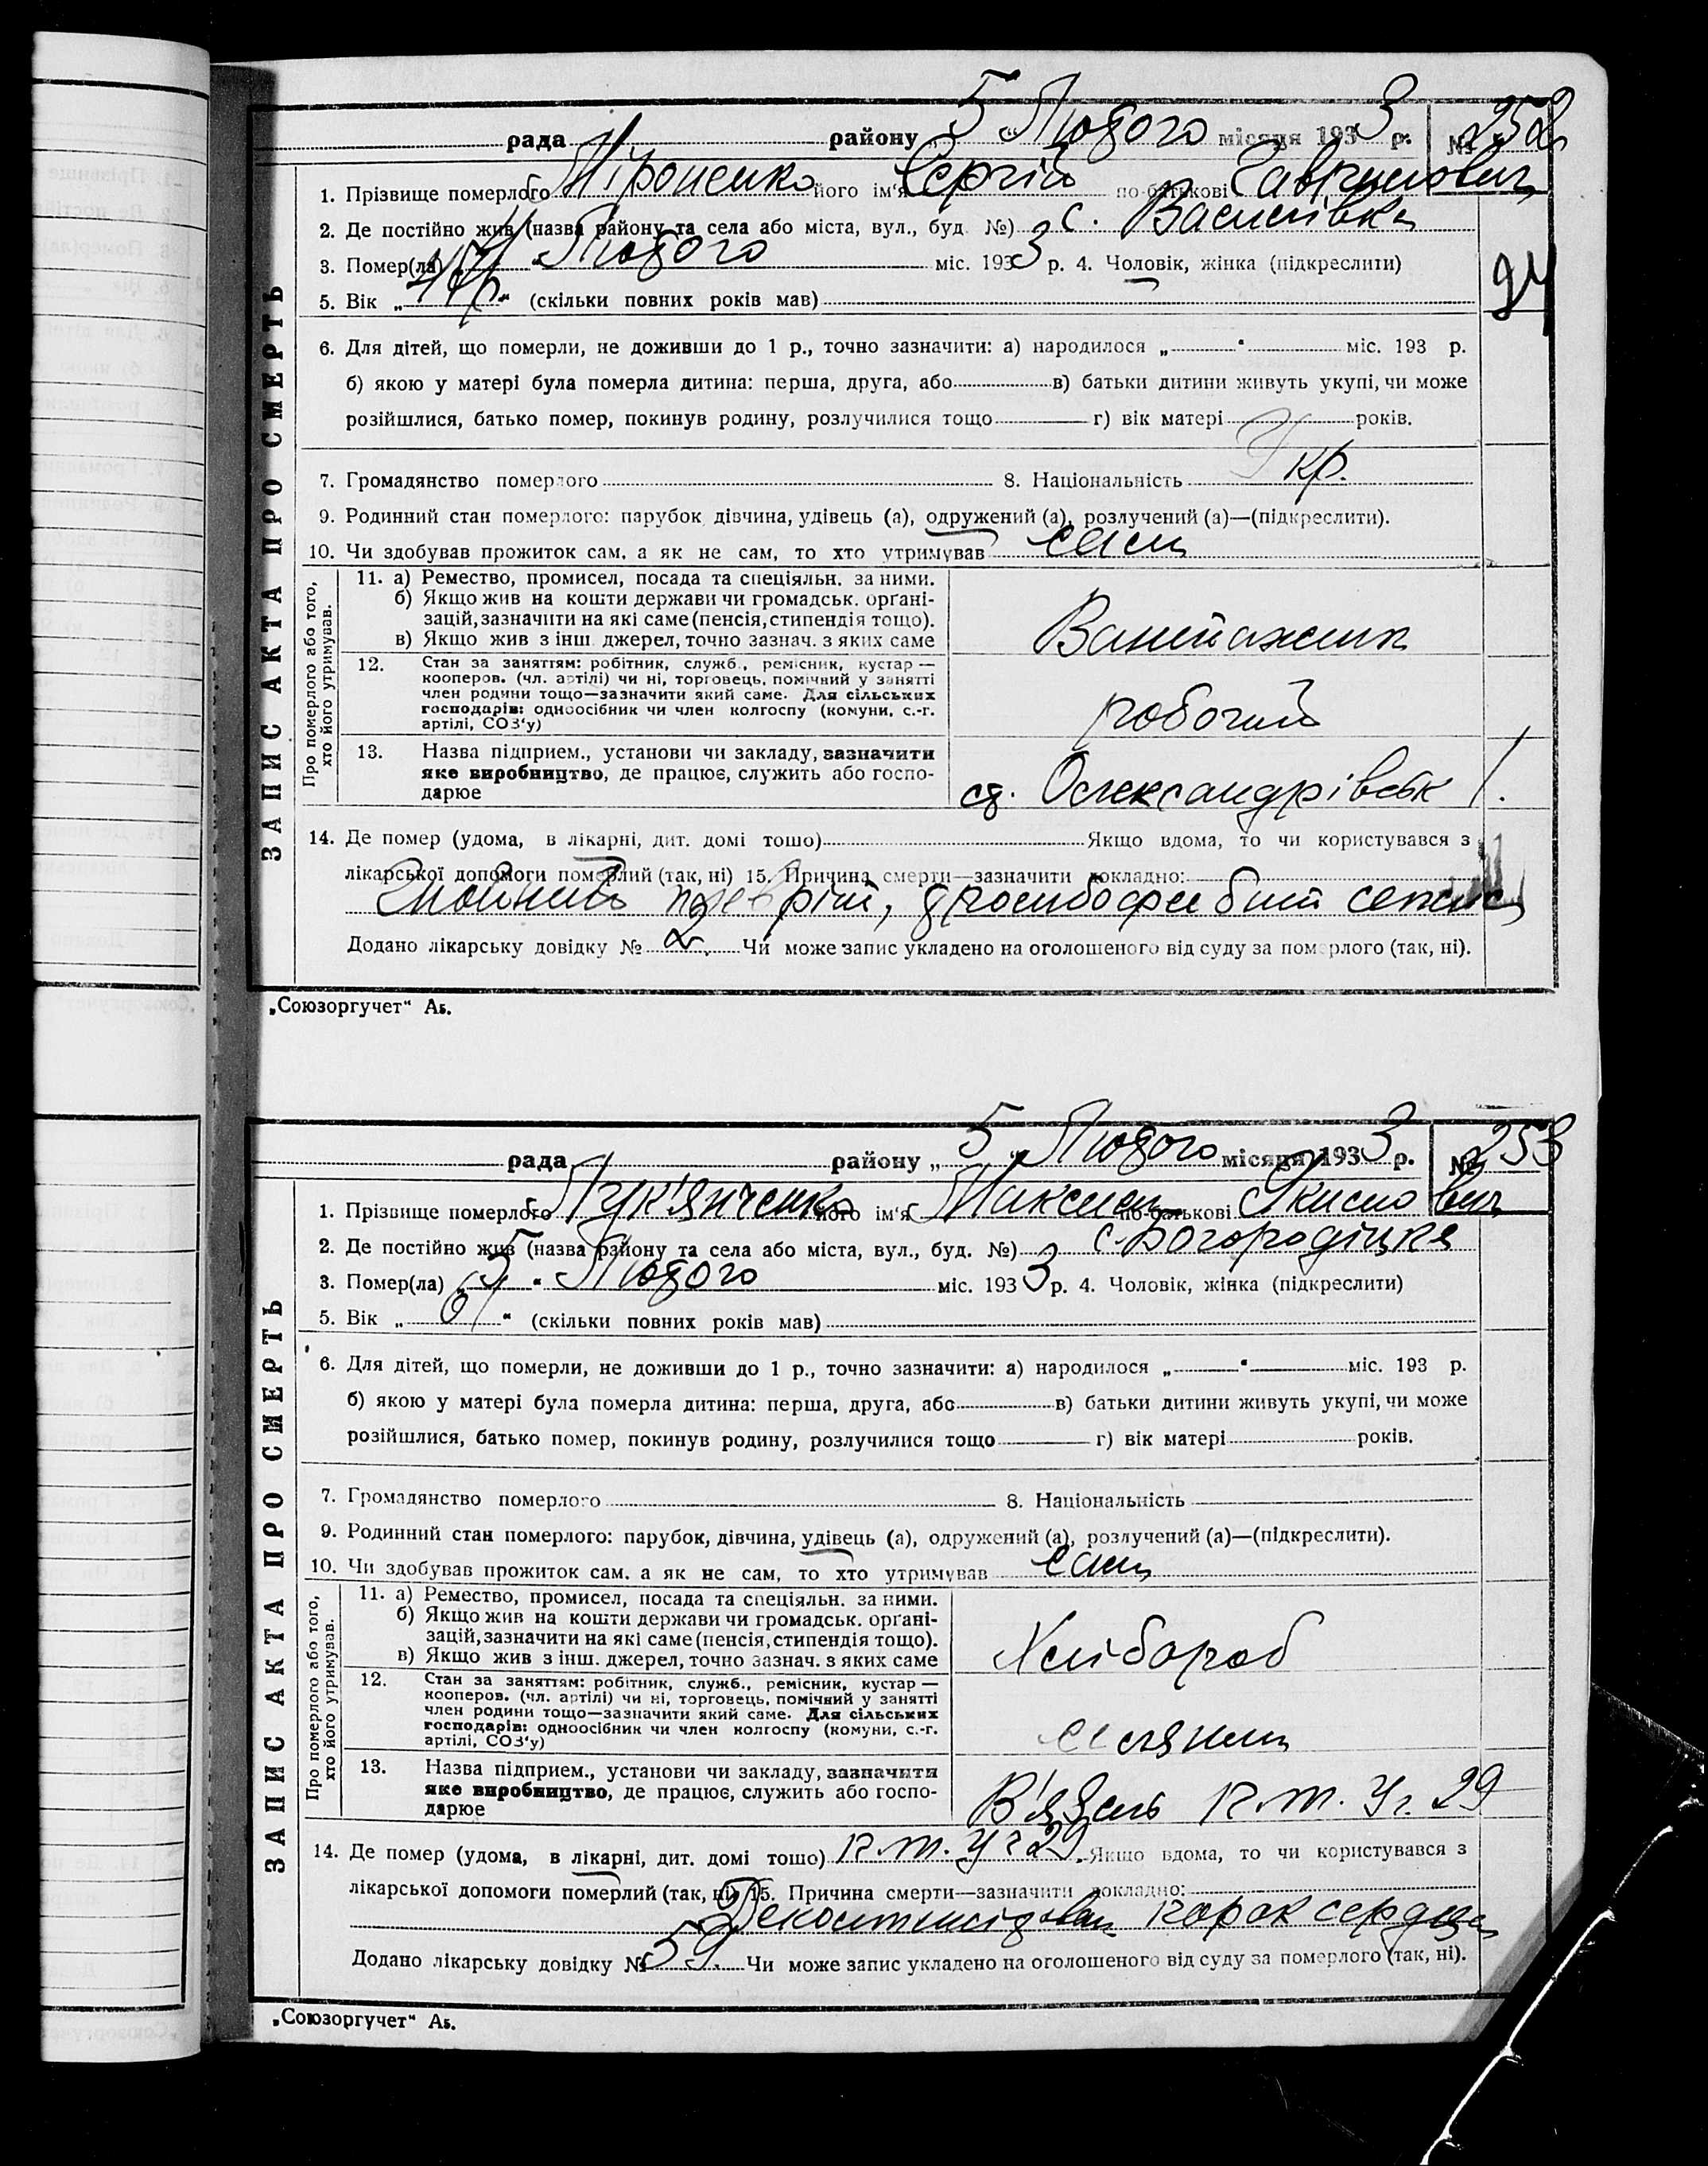 рада району „5“ Лютого місяця 1933 р. № 252
ЗАПИС АКТА ПРО СМЕРТЬ
1. Прізвище померлого Міроненко його ім'я Сергій по-батькові Гаврилович
2. Де постійно жив (назва району та села або міста, вул., буд. №) с. Василівка
3. Помер(ла) „4“ Лютого міс. 1933 р. 4. Чоловік, жінка (підкреслити)
5. Вік „47р.“ (скільки повних років мав)
94
6. Для дітей, що померли, не доживши до 1 р., точно зазначити: а) народилося „ “ міс. 193 р.
б) якою у матері була померла дитина: перша, друга, або в) батьки дитини живуть укупі, чи може
розійшлися, батько помер, покинув родину, розлучилися тощо г) вік матері років.
7. Громадянство померлого 8. Національність Укр.
9. Родинний стан померлого: парубок, дівчина, удівець (а), одружений (а), розлучений (а)—(підкреслити).
10. Чи здобував прожиток сам, а як не сам, то хто утримував сам
Про померлого або того, хто його утримував.
11. а) Ремество, промисел, посада та спеціяльн. за ними.
б) Якщо жив на кошти держави чи громадськ. орґані-
зацій, зазначити на які саме (пенсія, стипендія тощо).
в) Якщо жив з інш. джерел, точно зазнач. з яких саме
Вантажник
12. Стан за заняттям: робітник, служб., ремісник, кустар—
кооперов. (чл. артілі) чи ні, торговець, помічний у занятті
член родини тощо—зазначити який саме. Для сільських
господарів: одноосібник чи член колгоспу (комуни, с.-г.
артілі, СОЗ'у)
робочий
13. Назва підприєм., установи чи закладу, зазначити
яке виробництво, де працює, служить або госпо-
дарює
ст. Олександрівськ 1.
14. Де помер (удома, в лікарні, дит. домі тощо) Якщо вдома, то чи користувався з
лікарської допомоги померлий (так, ні) 15. Причина смерти—зазначити докладно:
Гнойний плеврит, сепсис
Додано лікарську довідку № 2. Чи може запис укладено на оголошеного від суду за померлого (так, ні).
„Союзоргучет“ А5.
рада району „5“ Лютого місяця 1933 р. № 253
ЗАПИС АКТА ПРО СМЕРТЬ
1. Прізвище померлого Лук'янченко його ім'я Максим по-батькові Якимович
2. Де постійно жив (назва району та села або міста, вул., буд. №) с. Богородіцке
3. Помер(ла) „5“ Лютого міс. 1933 р. 4. Чоловік, жінка (підкреслити)
5. Вік „67“ (скільки повних років мав)
6. Для дітей, що померли, не доживши до 1 р., точно зазначити: а) народилося „ “ міс. 193 р.
б) якою у матері була померла дитина: перша, друга, або в) батьки дитини живуть укупі, чи може
розійшлися, батько помер, покинув родину, розлучилися тощо г) вік матері років.
7. Громадянство померлого 8. Національність
9. Родинний стан померлого: парубок, дівчина, удівець (а), одружений (а), розлучений (а)—(підкреслити).
10. Чи здобував прожиток сам, а як не сам, то хто утримував сам
Про померлого або того, хто його утримував.
11. а) Ремество, промисел, посада та спеціяльн. за ними.
б) Якщо жив на кошти держави чи громадськ. орґані-
зацій, зазначити на які саме (пенсія, стипендія тощо).
в) Якщо жив з інш. джерел, точно зазнач. з яких саме
Хлібороб
12. Стан за заняттям: робітник, служб., ремісник, кустар—
кооперов. (чл. артілі) чи ні, торговець, помічний у занятті
член родини тощо—зазначити який саме. Для сільських
господарів: одноосібник чи член колгоспу (комуни, с.-г.
артілі, СОЗ'у)
селянин
13. Назва підприєм., установи чи закладу, зазначити
яке виробництво, де працює, служить або госпо-
дарює
В'язень к.т. Уч. 29
14. Де помер (удома, в лікарні, дит. домі тощо) к.т. Уч 29. Якщо вдома, то чи користувався з
лікарської допомоги померлий (так, ні) 15. Причина смерти—зазначити докладно:
порок сердца
Додано лікарську довідку № 59. Чи може запис укладено на оголошеного від суду за померлого (так, ні).
„Союзоргучет“ А5.